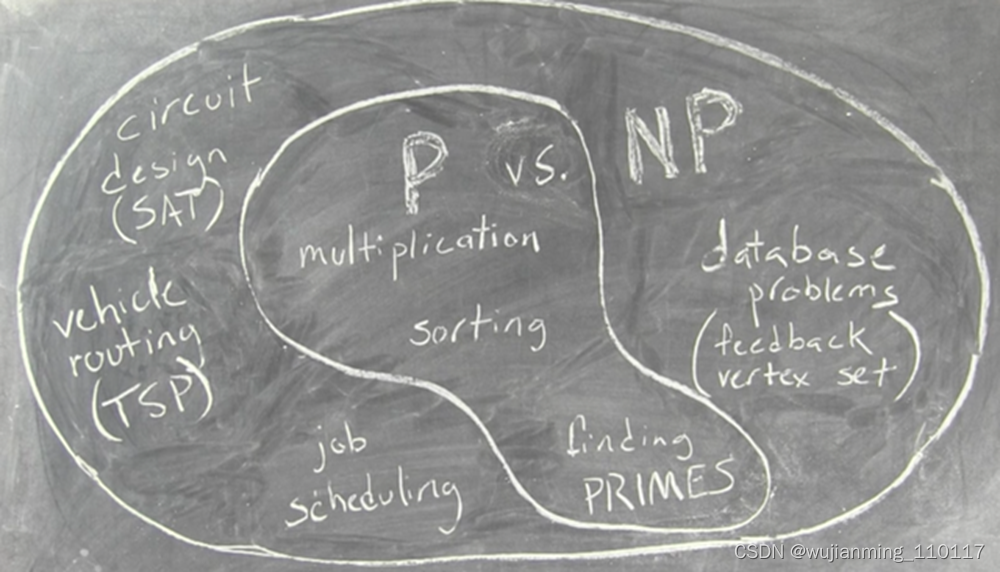 circuit
design
(SAT)
P vs. NP
multiplication
sorting
vehicle
routing
(TSP)
database
problems
(feedback
vertex set)
job
scheduling
finding
PRIMES
CSDN @wujianming_110117